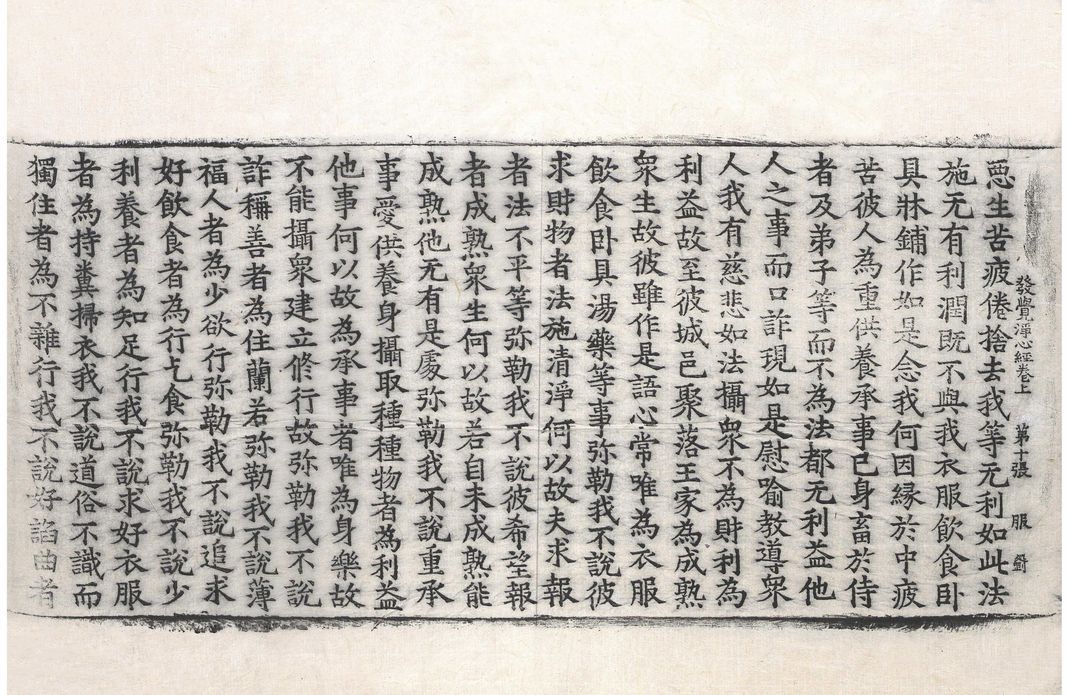 發覺淨心經卷上 第十張 服
悪生苦疲倦捨去我等无利如此法
施无有利潤既不與我衣服飲食卧
具牀鋪作如是念我何因縁於中疲
苦彼人為重供養承事己身畜於侍
者及弟子等而不為法都无利益他
人之事而口詐現如是慰喻教導衆
人我有慈悲如法攝衆不為財利為
利益故至彼城邑聚落王家為成熟
衆生故彼雖作是語心常唯為衣服
飲食卧具湯藥等事弥勒我不說彼
求財物者法施清淨何以故夫求報
者法不平等弥勒我不說彼希望報
者成熟衆生何以故若自未成熟能
成熟他无有是處弥勒我不說重承
事愛供養身攝取種種物者為利益
他事何以故為承事者唯為身樂故
不能攝衆建立修行故弥勒我不說
詐稱善者為住蘭若弥勒我不說薄
福人者為少欲行弥勒我不說追求
好飲食者為行乞食弥勒我不說少
利養者為知足行我不說求好衣服
者為持糞掃衣我不說道俗不識而
獨住者為不雜行我不說好諂曲者